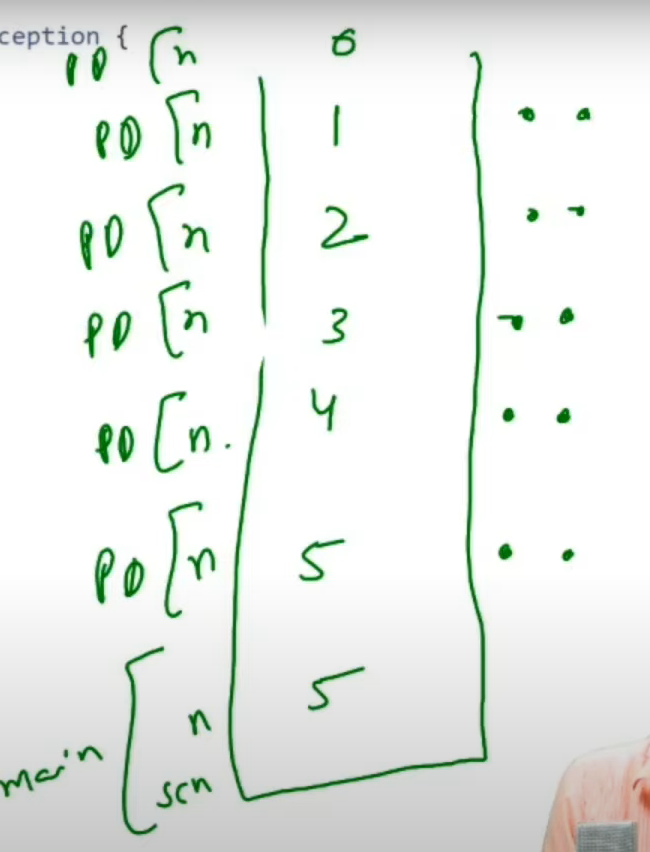 ception {
PD [n 0
PD [n 1
PD [n 2
PD [n 3
PD [n. 4
PD [n 5
n 5
main [
scn